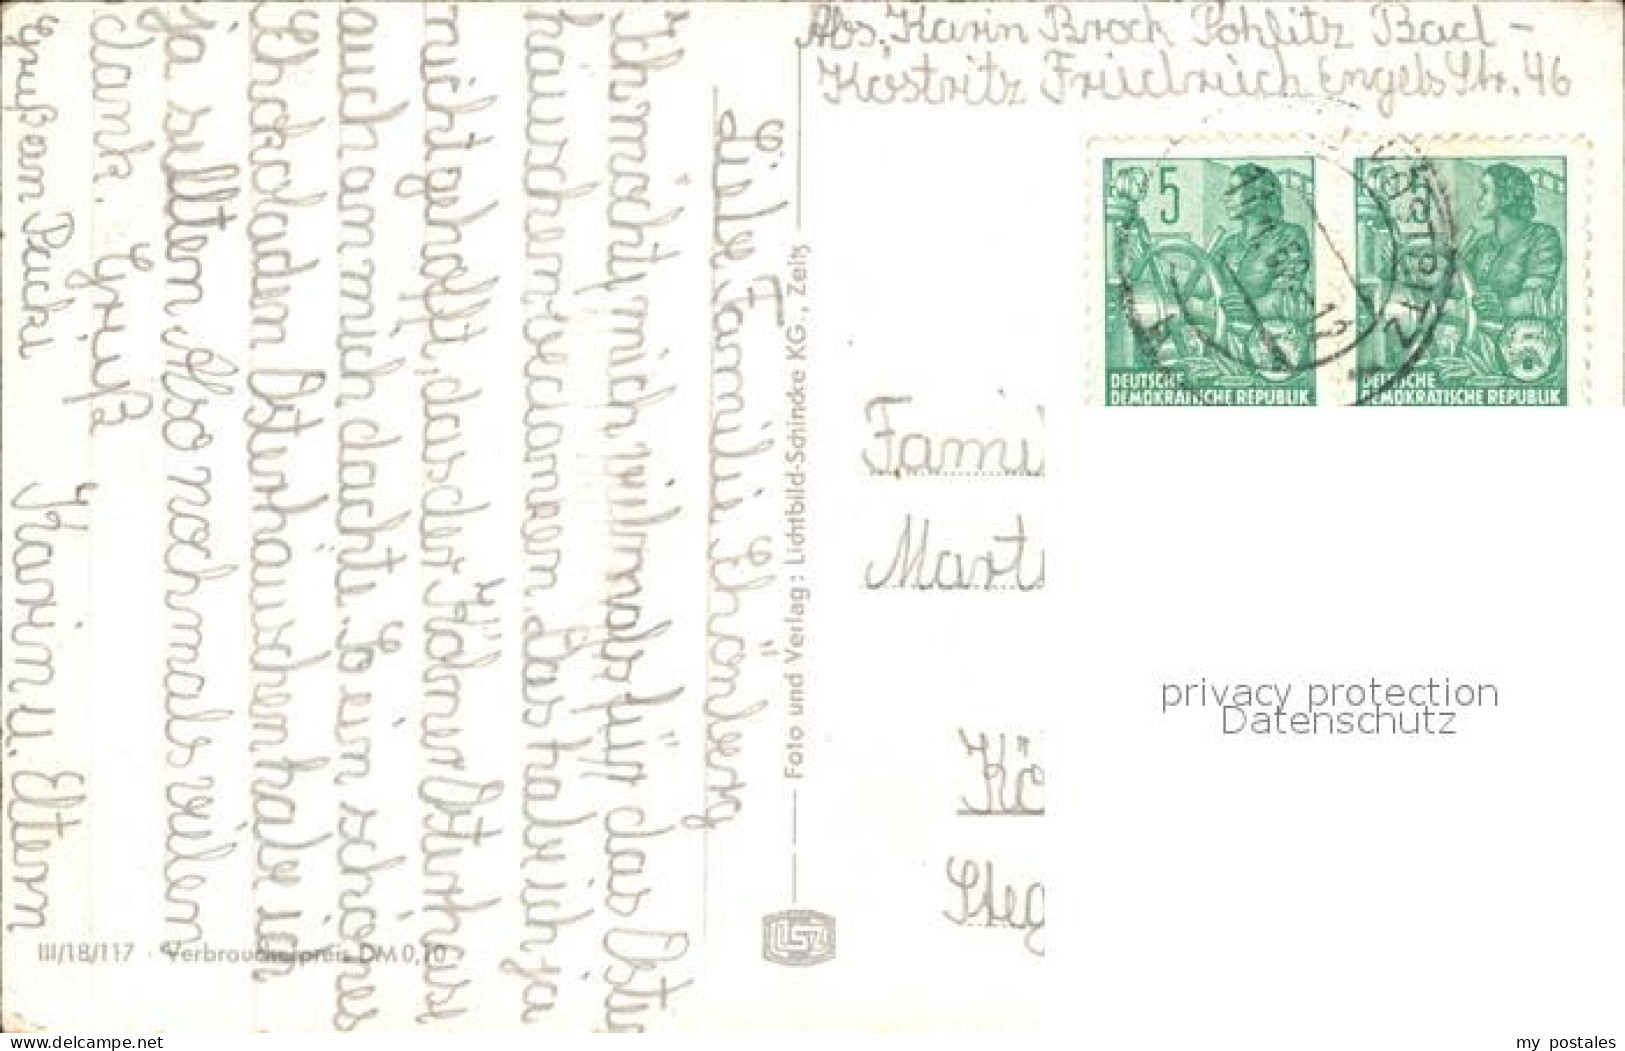 Abs. Karin Brock Pohlitz Bad-
Köstritz Friedrich Engels Str. 46
5
5
DEUTSCHE
DEMOKRATISCHE REPUBLIK
DEUTSCHE
DEMOKRATISCHE REPUBLIK
Liebe Familie Schönberg
Ich möchte mich vilmals für das Oster
häuschen bedanken. Das habe ich ja
nicht gehofft, das der Kölner Osterhase
auch an mich dachte. So ein schönes
Schokoladen Osterhäuschen habe ich
ja sellten. Also nochmals vilen
dank. Gruß
Karin u. Eltern
Grüßen
Foto und Verlag: Lichtbild-Schincke KG., Zeitz
III/18/117 · Verbraucherpreis DM 0,10
Fami
Mart
Kö
Steg
privacy protection
Datenschutz
delcampe.net
my_postales